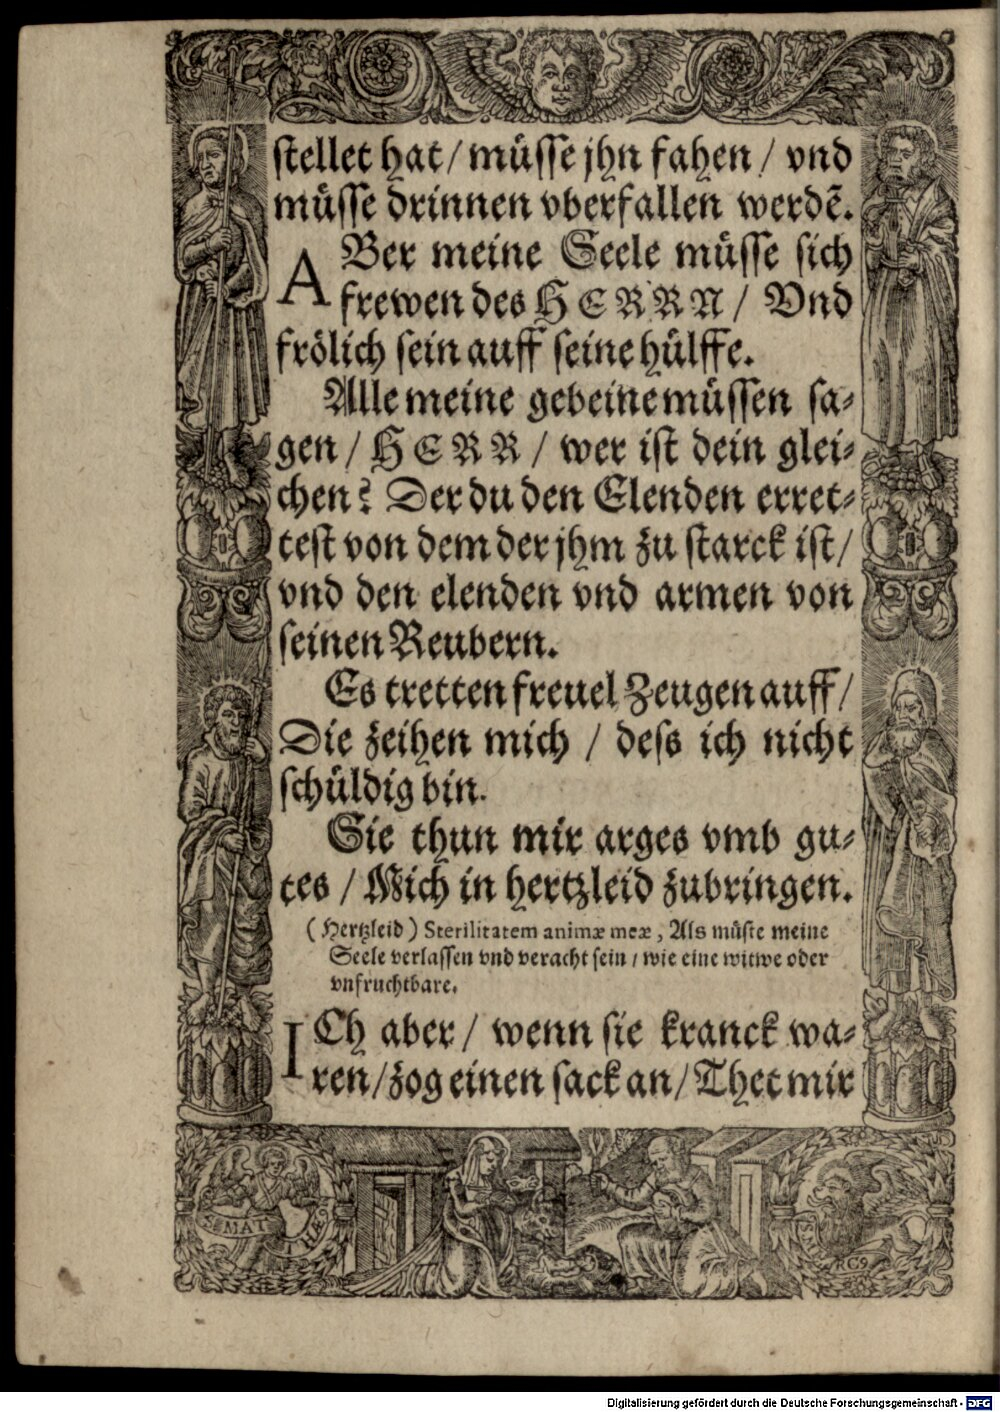 stellet hat / müsse jhn fahen / vnd
müsse drinnen vberfallen werdẽ.
ABer meine Seele müsse sich
frewen des HERRN / Vnd
frölich sein auff seine hülffe.
Alle meine gebeine müssen sa-
gen / HERR / wer ist dein glei-
chen? Der du den Elenden erret-
test von dem der jhm zu starck ist /
vnd den elenden vnd armen von
seinen Reubern.
Es tretten freuel Zeugen auff /
Die zeihen mich / dess ich nicht
schüldig bin.
Sie thun mir arges vmb gu-
tes / Mich in hertzleid zubringen.
(Hertzleid) Sterilitatem animæ meæ, Als müste meine
Seele verlassen vnd veracht sein / wie eine witwe oder
vnfruchtbare.
ICh aber / wenn sie kranck wa-
ren / zog einen sack an / Thet mir
S. MAT
HÆ
RC9
Digitalisierung gefördert durch die Deutsche Forschungsgemeinschaft - DFG